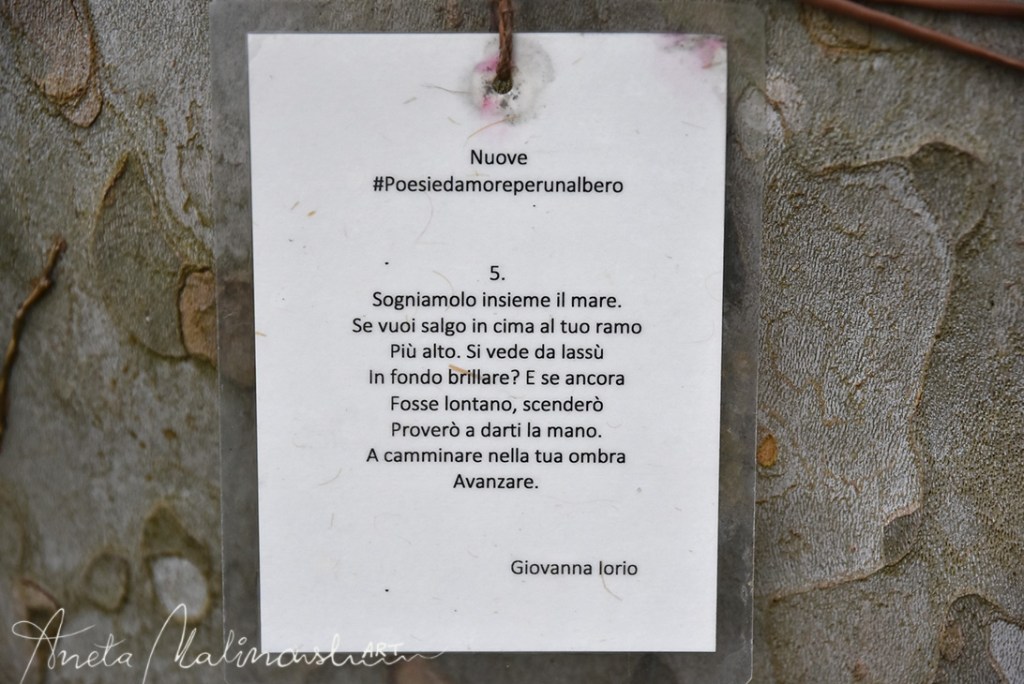 Nuove
#Poesiedamoreperunalbero
5.
Sogniamolo insieme il mare.
Se vuoi salgo in cima al tuo ramo
Più alto. Si vede da lassù
In fondo brillare? E se ancora
Fosse lontano, scenderò
Proverò a darti la mano.
A camminare nella tua ombra
Avanzare.
Giovanna Iorio
Aneta Malinowska
ART